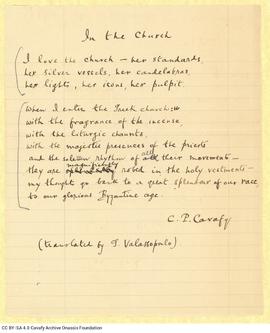 In the Church
I love the church — her standards,
her silver vessels, her candelabras,
her lights, her icons, her pulpit.
When I enter the Greek church:
with the fragrance of the incense,
with the liturgic chaunts,
with the majestic presences of the priests
and the solemn rhythm of all their movements —
they are magnificently robed in the holy vestments —
my thought goes back to a great splendour of our race
to our glorious Byzantine age.
C. P. Cavafy
(translated by G. Valassopoulo)
CC BY-SA 4.0 Cavafy Archive Onassis Foundation